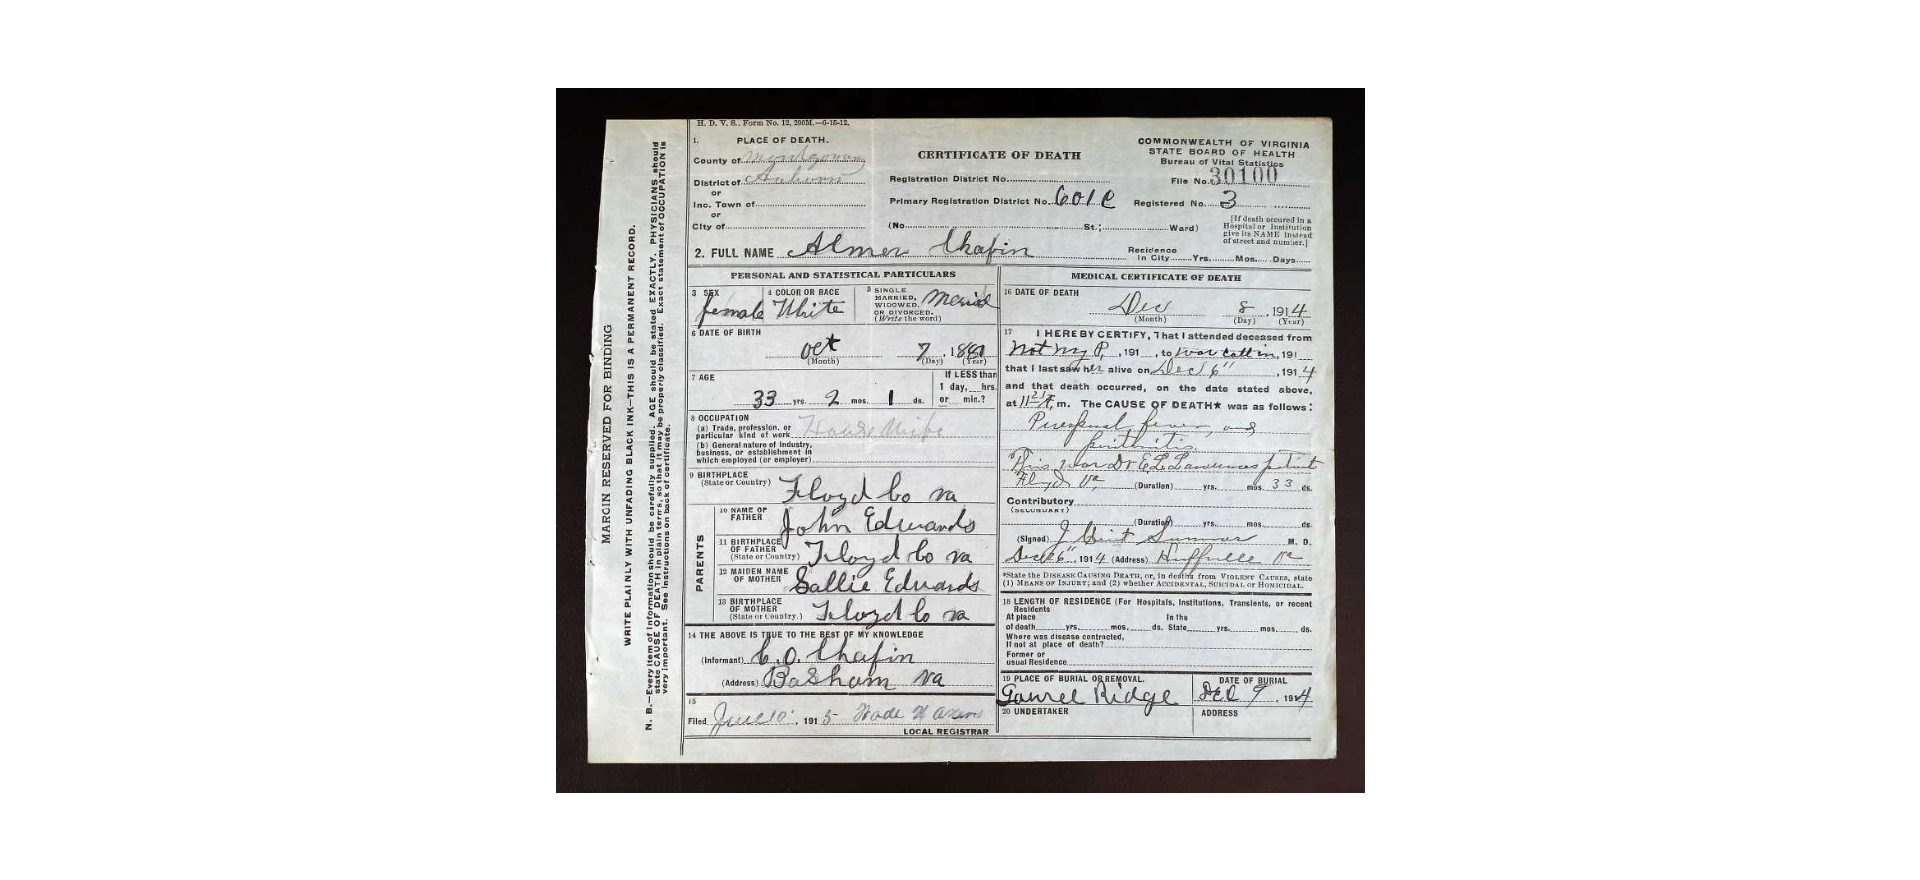 H. D. V. S., Form No. 12, 200M.—6-15-12.
1. PLACE OF DEATH.
County of Montgomery
District of Auburn
or
Inc. Town of
or
City of
CERTIFICATE OF DEATH
Registration District No.
Primary Registration District No. 601C
(No. St.; Ward)
COMMONWEALTH OF VIRGINIA
STATE BOARD OF HEALTH
Bureau of Vital Statistics
File No. 30100
Registered No. 3
[If death occured in a
Hospital or Institution
give its NAME instead
of street and number.]
2. FULL NAME Almer Chafin
Residence
In City Yrs. Mos. Days
PERSONAL AND STATISTICAL PARTICULARS
3 SEX
female
4 COLOR OR RACE
White
5 SINGLE
MARRIED,
WIDOWED,
OR DIVORCED.
(Write the word)
6 DATE OF BIRTH
Oct 7, 188
(Month) (Day) (Year)
7 AGE
33 yrs. 2 mos. 1 ds.
If LESS than
1 day, hrs.
or min.?
8 OCCUPATION
(a) Trade, profession, or
particular kind of work House Wife
(b) General nature of Industry,
business, or establishment in
which employed (or employer)
9 BIRTHPLACE
(State or Country) Floyd Co Va
PARENTS
10 NAME OF
FATHER John Edwards
11 BIRTHPLACE
OF FATHER
(State or Country) Floyd Co Va
12 MAIDEN NAME
OF MOTHER Sallie Edwards
13 BIRTHPLACE
OF MOTHER
(State or Country.) Floyd Co Va
14 THE ABOVE IS TRUE TO THE BEST OF MY KNOWLEDGE
(Informant) C. O. Chafin
(Address) Basham Va
15
Filed 10, 1915 Wade H
LOCAL REGISTRAR
MEDICAL CERTIFICATE OF DEATH
16 DATE OF DEATH
Dec 8, 1914
(Month) (Day) (Year)
17 I HEREBY CERTIFY, That I attended deceased from
Not my P, 191 , to was call in, 191
that I last saw her alive on Dec 6", 1914
and that death occurred, on the date stated above,
at 11 m. The CAUSE OF DEATH* was as follows:
Puerperal fever, and
This was Dr E. L. Lawrences
Floyd Va (Duration) yrs. mos. 33 ds.
Contributory
(SECONDARY)
(Duration) yrs. mos. ds.
(Signed) J M. D.
Dec 6", 1914 (Address) Huffville Va
*State the DISEASE CAUSING DEATH, or, in deaths from VIOLENT CAUSES, state
(1) MEANS OF INJURY; and (2) whether ACCIDENTAL, SUICIDAL or HOMICIDAL.
18 LENGTH OF RESIDENCE (For Hospitals, Institutions, Transients, or recent
Residents
At place In the
of death yrs. mos. ds. State yrs. mos. ds.
Where was disease contracted,
If not at place of death?
Former or
usual Residence
19 PLACE OF BURIAL OR REMOVAL.
Laurel Ridge
DATE OF BURIAL
Dec 9, 1914
20 UNDERTAKER
ADDRESS
MARGIN RESERVED FOR BINDING
WRITE PLAINLY WITH UNFADING BLACK INK—THIS IS A PERMANENT RECORD.
N. B.—Every item of Information should be carefully supplied. AGE should be stated EXACTLY. PHYSICIANS should
state CAUSE OF DEATH in plain terms, so that it may be properly classified. Exact statement of OCCUPATION is
very important. See Instructions on back of certificate.